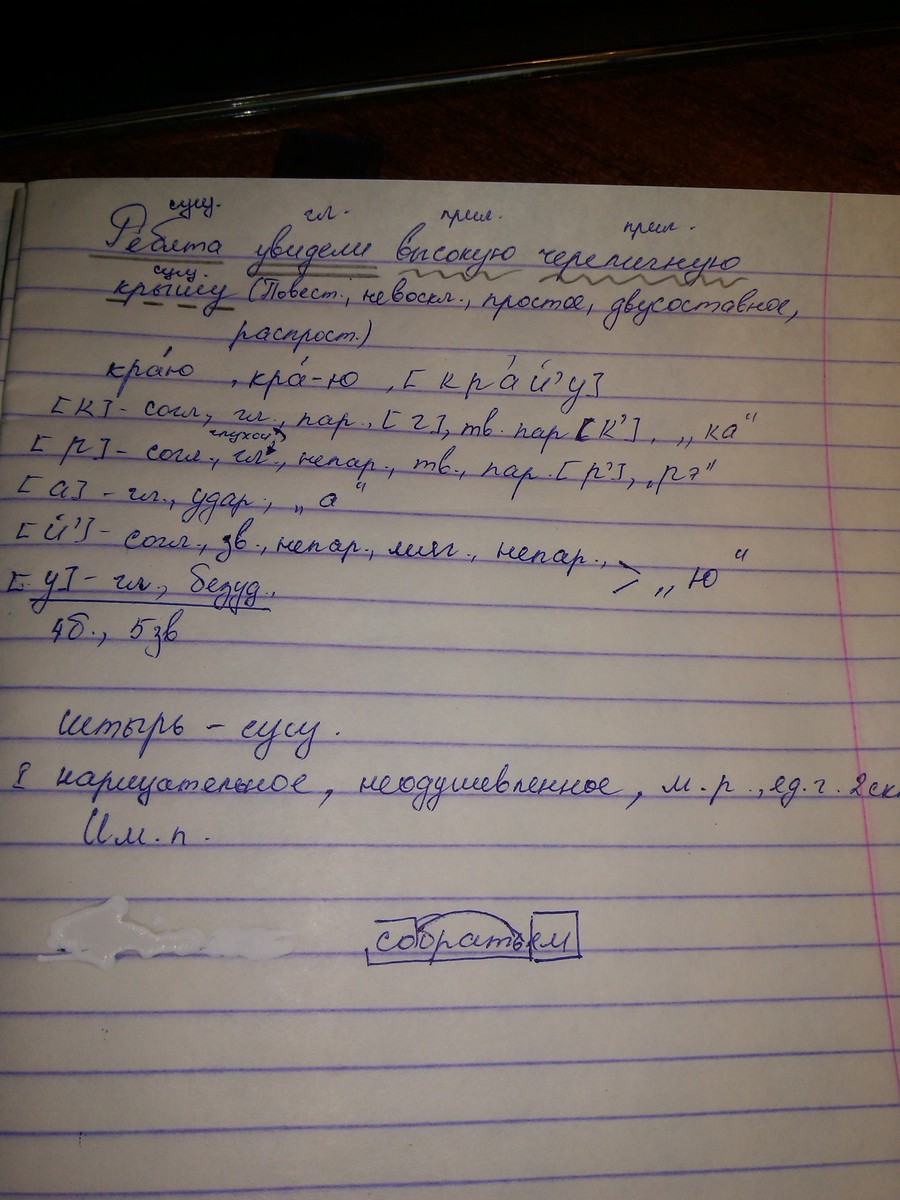 сущ. гл. прил. прил.
Ребята увидели высокую черепичную
сущ.
крышу (Повест., невоскл., простое, двусоставное,
распрост.)
кра́ю , кра́-ю , [ к р а́ й' у]
[к] - согл., гл., пар. [г], тв. пар [к'], „ка“
глухой
[р] - согл., гл., непар., тв., пар. [р'], „рэ“
[а] - гл., удар., „а“
[й'] - согл., зв., непар., мяг., непар., > „ю“
[у] - гл., безуд.
4б., 5зв
штырь - сущ.
I нарицательное, неодушевленное, м.р., ед.ч. 2ск
Им.п.
собратьем